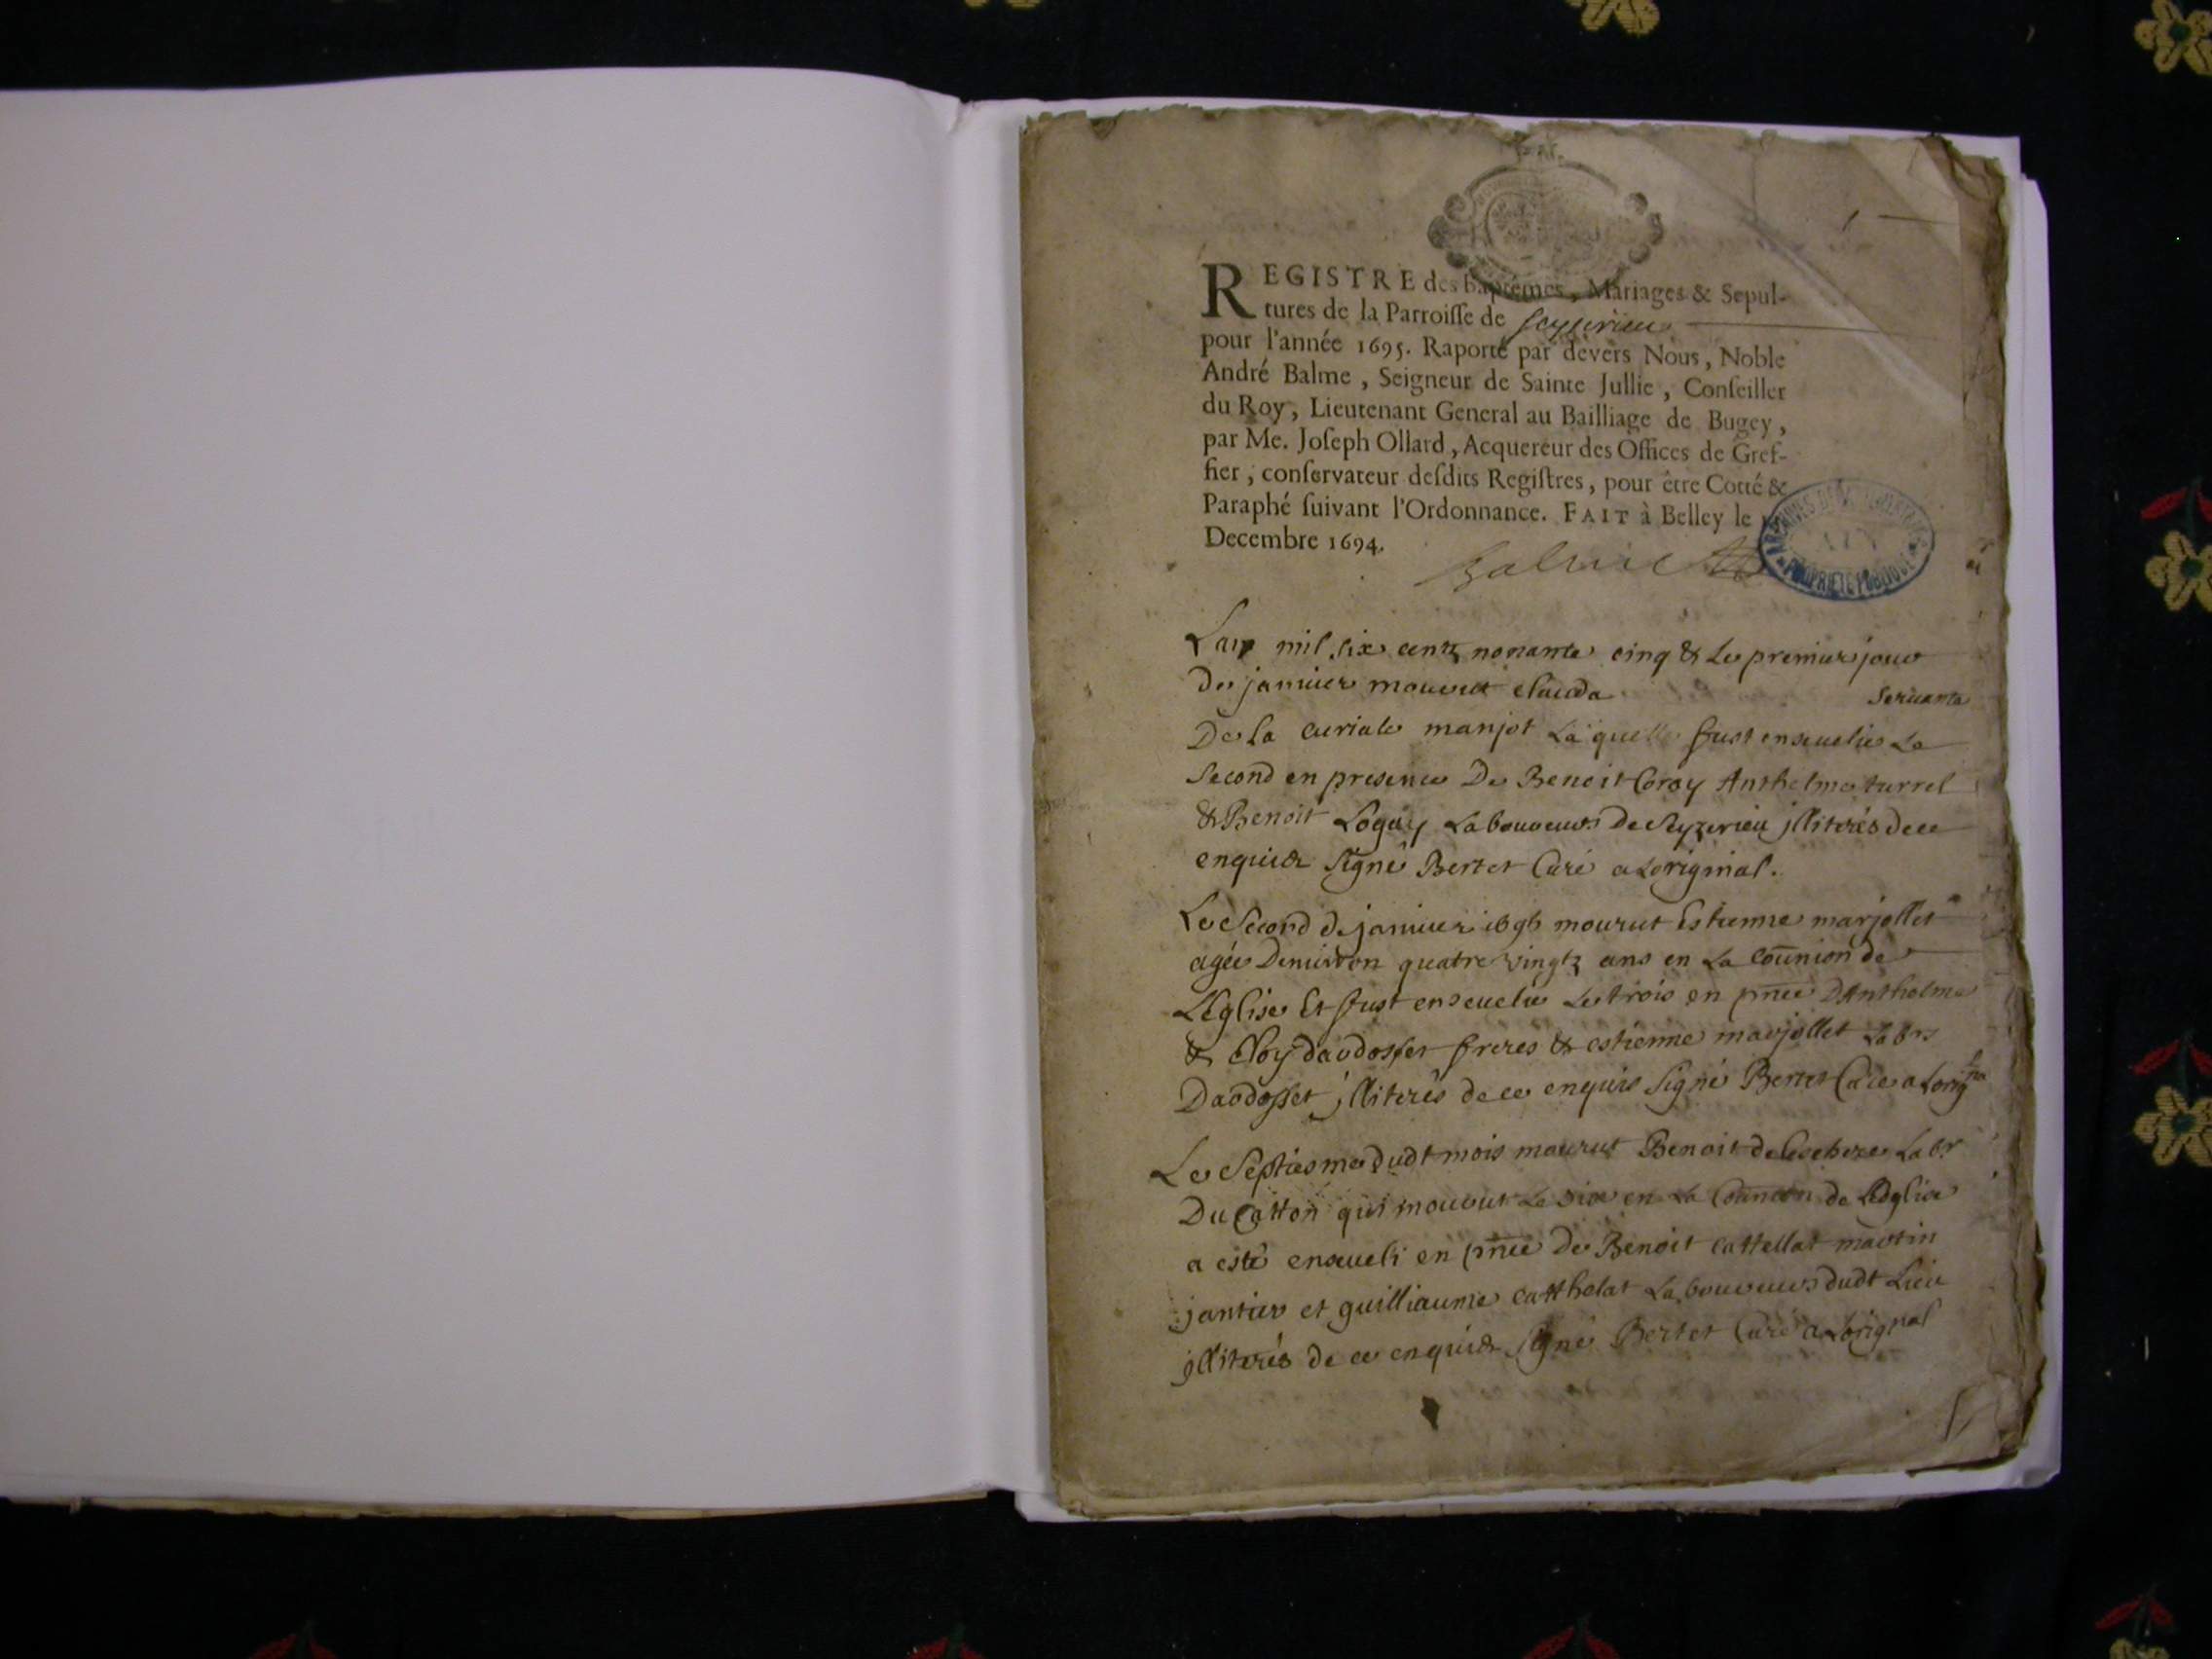 REGISTRE des baptémes, Mariages & Sepul-
tures de la Parroisse de Seyzerieu
pour l'année 1695. Raporté par devers Nous, Noble
André Balme, Seigneur de Sainte Jullie, Conseiller
du Roy, Lieutenant General au Bailliage de Bugey,
par Me. Joseph Ollard, Acquereur des Offices de Gref-
fier, conservateur desdits Registres, pour être Cotté &
Paraphé suivant l'Ordonnance. FAIT à Belley le
Decembre 1694.
Balme
ARCHIVES DEPARTEMENTALES
AIN
PROPRIETE PUBLIQUE
Lan mil six centz nonante cinq & le premier jour
de janvier mourut clauda servante
De la curiale manjot laquelle fust ensevelie le
second en presence De Benoit Coray Anthelme turrel
& Benoit Logay Laboureurs De Seyzerieu illiterés de ce
enquis Signé Bertet Curé a Loriginal.
Le Second de janvier mourut Estienne marjollet
agée Denviron quatre vingtz ans en La cou͞nion de
LEglise Et fust ensevelie Le trois en p͞nce DAnthelme
& Cloy davdosset freres & estienne marjollet Labrs
Davdosset illiterés de ce enquis Signé Bertet Curé a Lorig͞na
Le Septiesme dudt mois mourut Benoit Labr
Du Catton qui mourut Le six en La de LEglise
a esté enseveli en p͞nce de Benoit cattellat martin
jantier et guilliaume catthelat Laboureurs dudt Lieu
illiterés de ce enquis Signé Bertet Curé a Lorignal